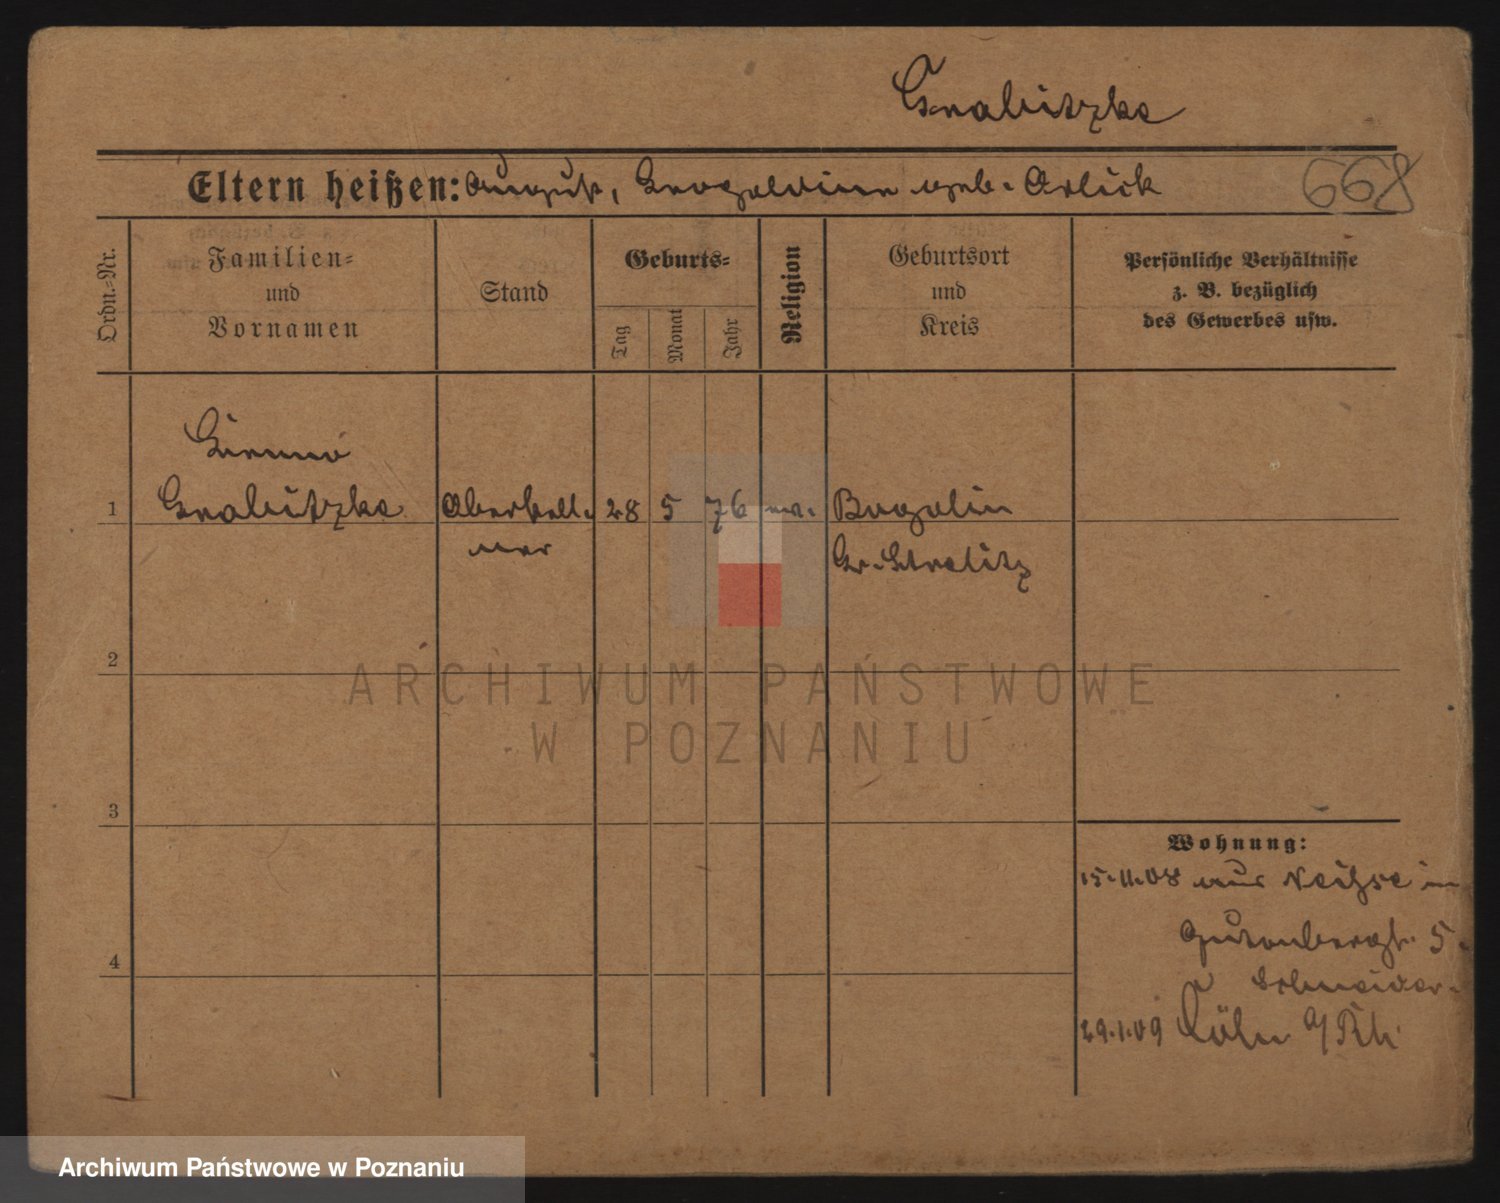 Grabitzke
Eltern heißen: August, Leopoldine geb. Arlick
668
Ordn.-Nr.
Familien-
und
Vornamen
Stand
Geburts-
Tag
Monat
Jahr
Religion
Geburtsort
und
Kreis
Persönliche Verhältnisse
z. B. bezüglich
des Gewerbes usw.
1
Grabitzke
Oberkell-
ner
28
5
76
Bogolin
Gr. Strelitz
2
3
4
Wohnung:
15.11.08 aus Neisse in
Gutenbergst. 5
Schneider
29.1.09 Cöln a/Rh.
ARCHIWUM PAŃSTWOWE
W POZNANIU
Archiwum Państwowe w Poznaniu